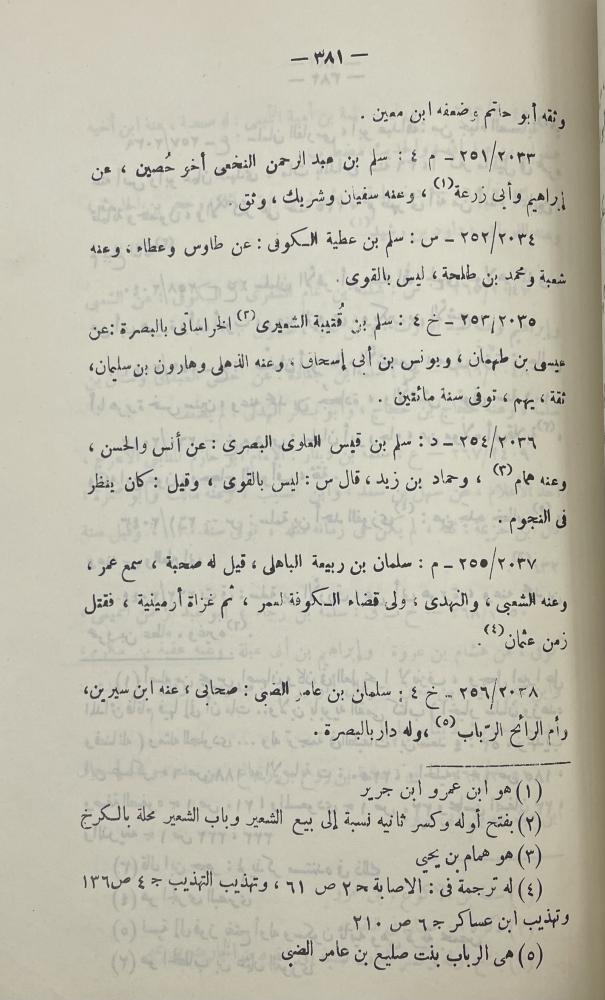 — ٣٨١ —
وثقه أبو حاتم وضعفه ابن معين .
٢٥١/٢٠٣٣ — م ٤ : سلم بن عبد الرحمن النخعى أخو حُصين ، عن
إبراهيم وأبى زرعة (١) ، وعنه سفيان وشريك ، وثق .
٢٥٢/٢٠٣٤ — س : سلم بن عطية الكوفى : عن طاوس وعطاء ، وعنه
شعبة ومحمد بن طلحة ، ليس بالقوى .
٢٥٣/٢٠٣٥ — خ ٤ : سلم بن قُتيبة الشعيرى (٢) الخراسانى بالبصرة : عن
عيسى بن طهمان ، ويونس بن أبى إسحاق ، وعنه الذهلى وهارون بن سليمان،
ثقة ، يهم ، توفى سنة مائتين .
٢٥٤/٢٠٣٦ — د : سلم بن قيس العلوى البصرى : عن أنس والحسن ،
وعنه همام (٣) ، وحماد بن زيد ، قال س : ليس بالقوى ، وقيل : كان ينظر
فى النجوم .
٢٥٥/٢٠٣٧ — م : سلمان بن ربيعة الباهلى ، قيل له صحبة ، سمع عمر ،
وعنه الشعبى ، والنهدى ، ولى قضاء الكوفة لعمر ، ثم غزاة أرمينية ، فقتل
زمن عثمان (٤) .
٢٥٦/٢٠٣٨ — خ ٤ : سلمان بن عامر الضبى : صحابى ، عنه ابن سيرين،
وأم الرائح الرّباب (٥) ،وله دار بالبصرة .
(١) هو ابن عمرو ابن جرير
(٢) بفتح أوله وكسر ثانيه نسبة إلى بيع الشعير وباب الشعير محلة بالكرخ
(٣) هو همام بن يحيى
(٤) له ترجمة فى : الاصابة حـ ٢ ص ٦١ ، وتهذيب التهذيب جـ ٤ ص ١٣٦
وتهذيب ابن عساكر جـ ٦ ص ٢١٠
(٥) هى الرباب بنت صليع بن عامر الضبى